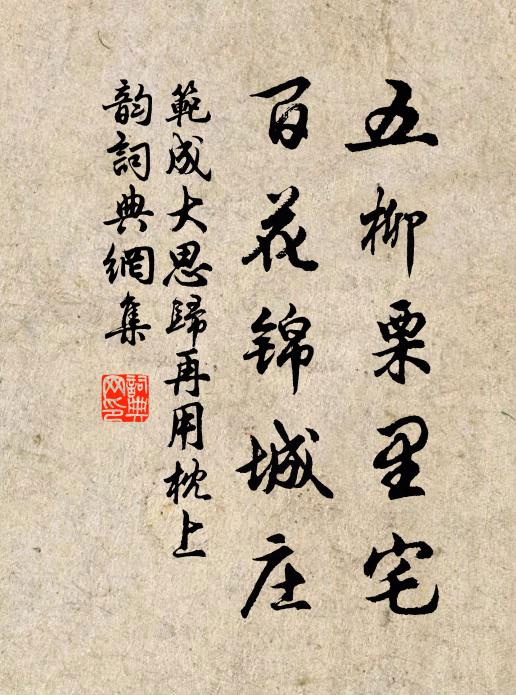 五柳栗里宅
百花锦城庄
範成大思歸再用枕上
韵詞典網集
詞典
网印